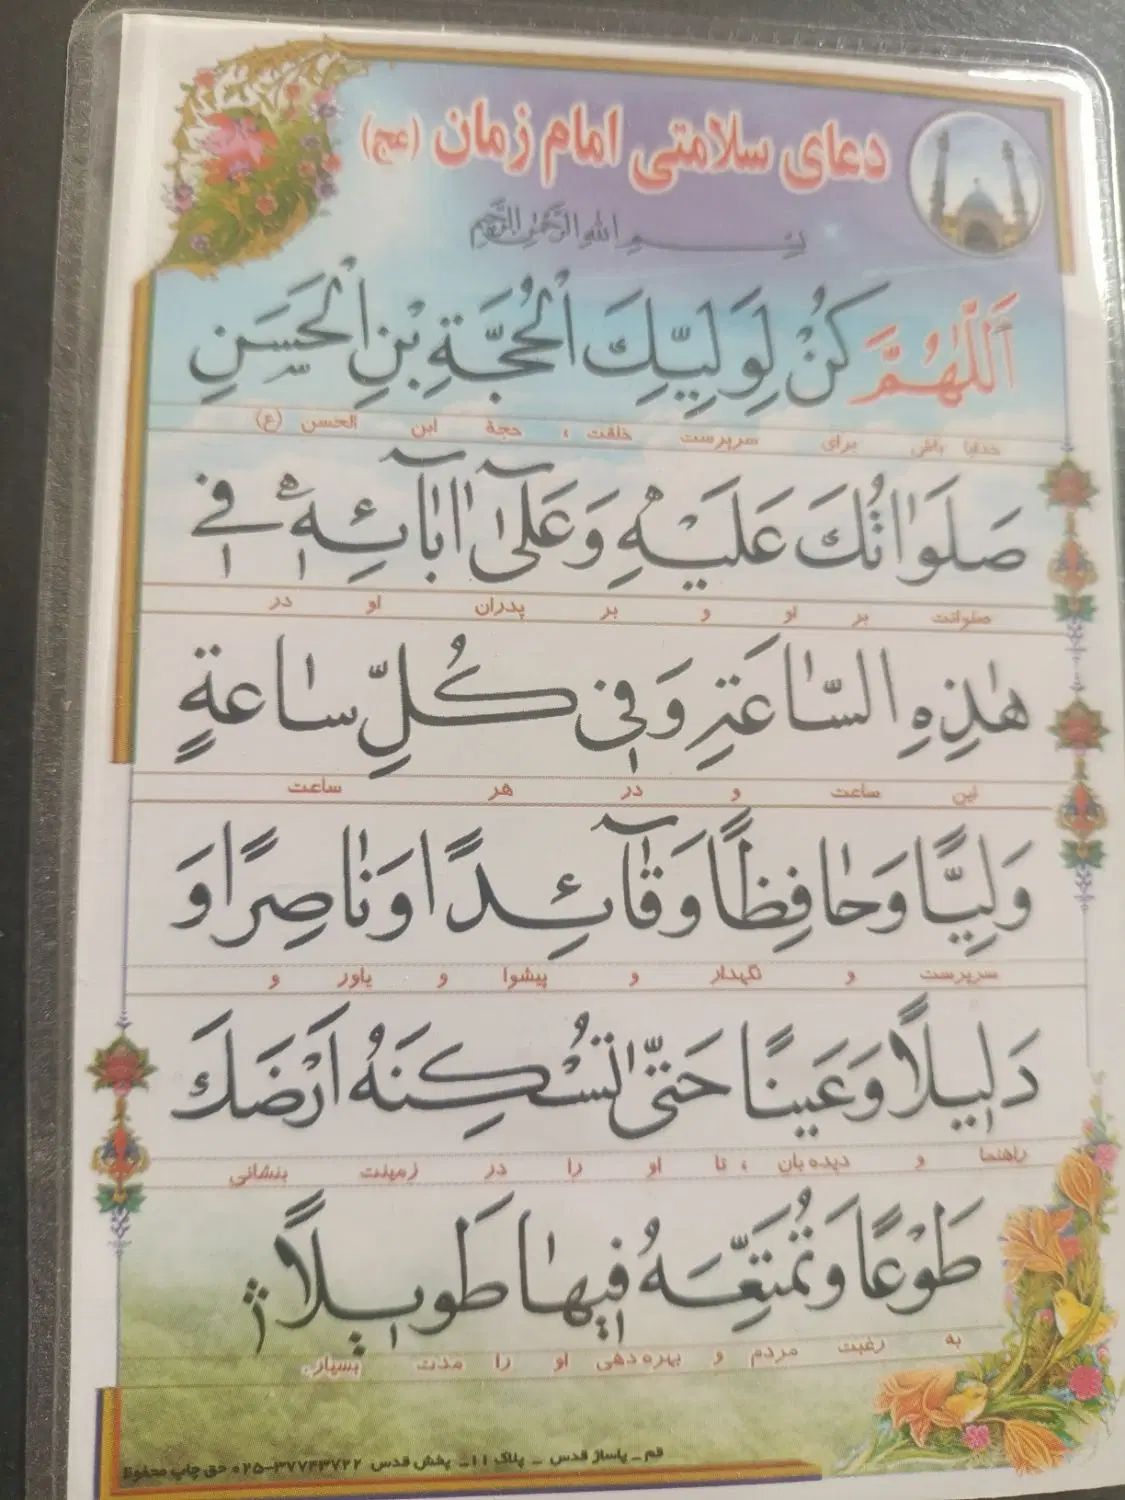 دعای سلامتی امام زمان (عج)
بسم الله الرحمن الرحیم
اَللّٰهُمَّ کُنْ لِوَلِیِّکَ الْحُجَّةِ بْنِ الْحَسَنِ
خدایا باش برای سرپرست خلقت ، حجة ابن الحسن (ع)
صَلَوٰاتُکَ عَلَیْهِ وَعَلیٰٓ اٰبٰآئِهٖ فٖی
صلواتت بر او و بر پدران او در
هٰذِهِ السّٰاعَةِ وَفٖی کُلِّ سٰاعةٍ
این ساعت و در هر ساعت
وَلِیًّا وَحٰافِظًا وَقٰآئِدًا وَنٰاصِرًا وَ
سرپرست و نگهدار و پیشوا و یاور و
دَلٖیلًا وَعَینًا حَتّیٰ تُسْکِنَهُ اَرْضَکَ
راهنما و دیده بان ، تا او را در زمینت بنشانی
طَوْعًا وَتُمَتِّعَهُ فٖیهٰا طَوٖیلًا
به رغبت مردم و بهره دهی او را مدت بسیار.
قم _ پاساژ قدس _ پلاک ۱۱_ پخش قدس ۳۷۷۴۳۷۲۲-۰۲۵ حق چاپ محفوظ